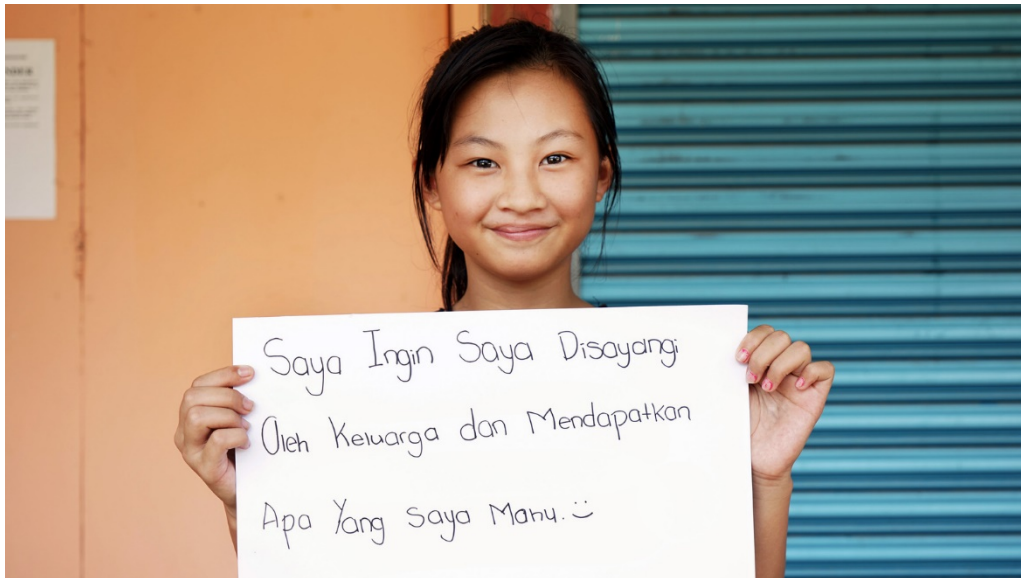 Saya Ingin Saya Disayangi
Oleh Keluarga dan Mendapatkan
Apa Yang Saya Mahu. :)